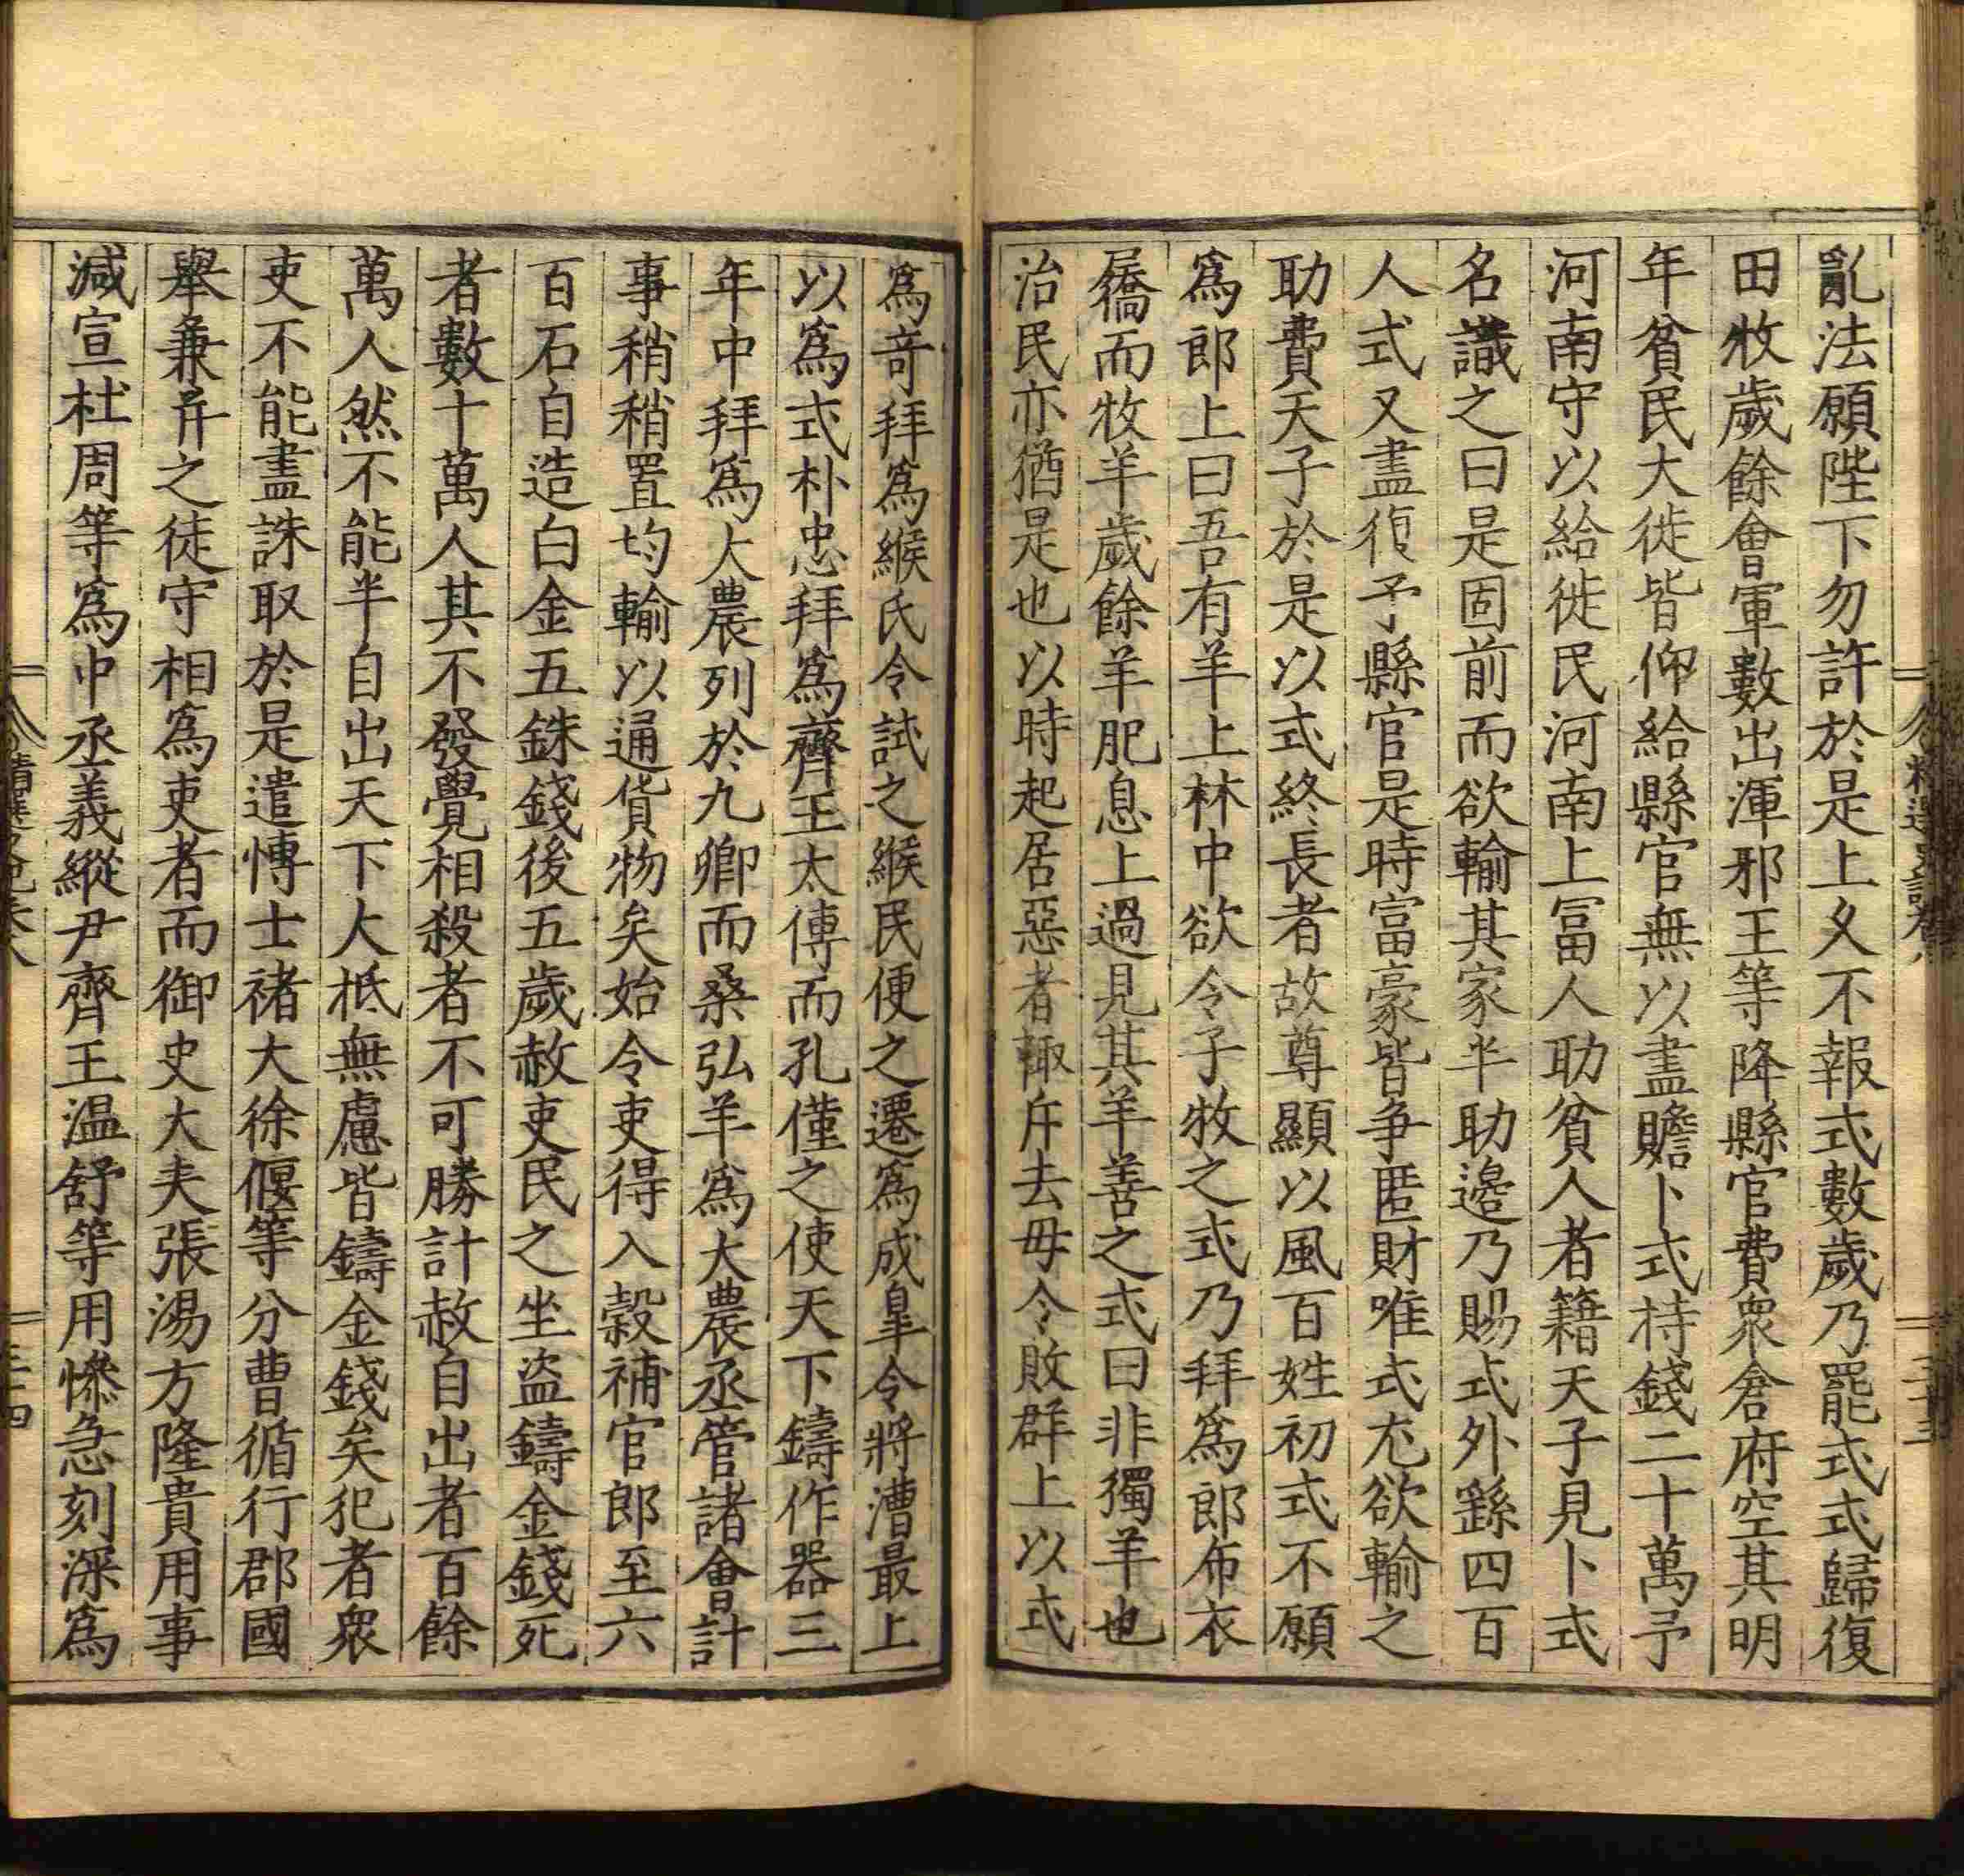 亂法願陛下勿許於是上乆不報式數歲乃罷式式歸復
田牧歲餘會軍數出渾邪王等降縣官費衆倉府空其明
年貧民大徙皆仰給縣官無以盡贍卜式持錢二十萬予
河南守以給徙民河南上冨人助貧人者籍天子見卜式
名識之曰是固前而欲輸其家半助邊乃賜式外繇四百
人式又盡復予縣官是時富豪皆争匿財唯式尤欲輸之
助費天子於是以式終長者故尊顯以風百姓初式不願
爲郎上曰吾有羊上林中欲令子牧之式乃拜爲郎布衣
屩而牧羊歲餘羊肥息上過見其羊善之式曰非獨羊也
治民亦猶是也以時起居惡者輙斥去毋令敗群上以式
爲竒拜爲緱氏令試之緱民便之遷爲成臯令將漕最上
以爲式朴忠拜爲齊王太傅而孔僅之使天下鑄作器三
年中拜爲大農列於九卿而桑弘羊爲大農丞管諸會計
事稍稍置均輸以通貨物矣始令吏得入穀補官郎至六
百石自造白金五銖錢後五歲赦吏民之坐盗鑄金錢死
者數十萬人其不發覺相殺者不可勝計赦自出者百餘
萬人然不能半自出天下大抵無慮皆鑄金錢矣犯者衆
吏不能盡誅取於是遣愽士褚大徐偃等分曹循行郡國
舉兼并之徒守相爲吏者而御史大夫張湯方隆貴用事
減宣杜周等爲中丞義縱尹齊王温舒等用慘急刻深爲